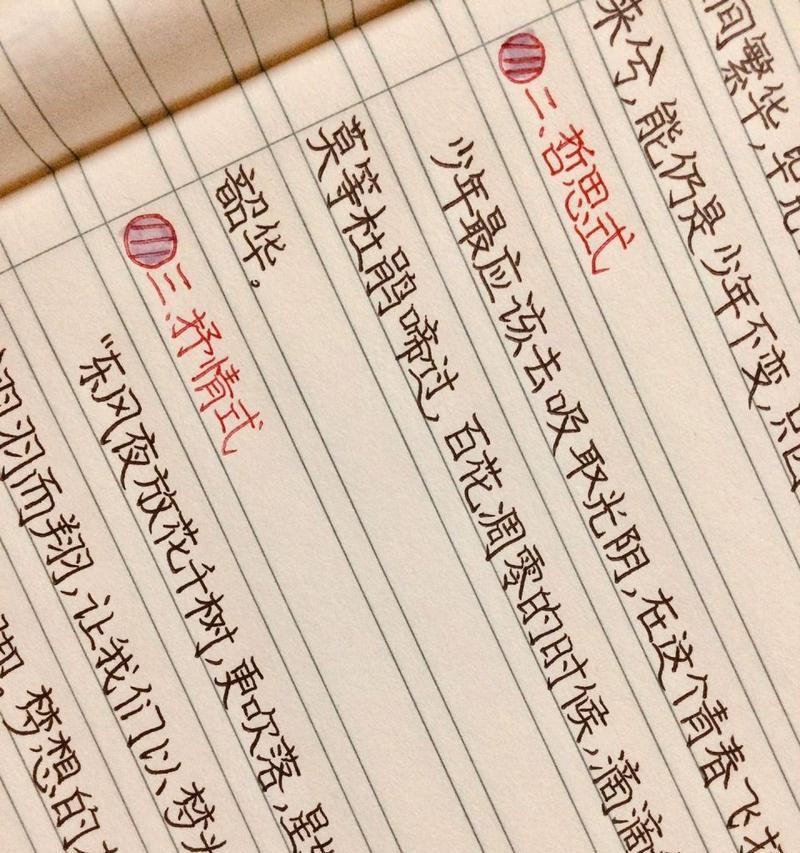 间繁华，毕
来兮，能仍是少年不变，只因
二、哲思式
少年最应该去吸取光阴，在这个青春飞扬
莫等杜鹃啼过，百花凋零的时候，滴滴
韶华。
三、抒情式
“东风夜放花千树，更吹落，星如
而翔，让我们以梦为
。梦想的